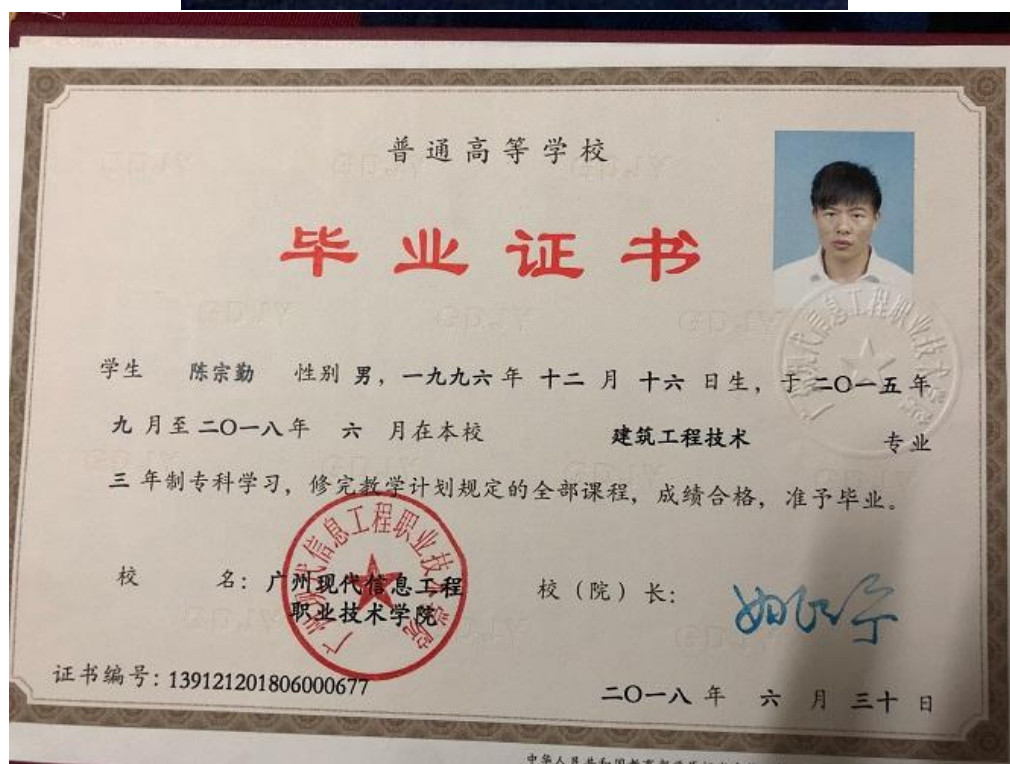 普通高等学校
毕业证书
学生 陈宗勤 性别 男，一九九六年 十二 月 十六 日生，于 二〇一五 年
九 月至 二〇一八 年 六 月在本校 建筑工程技术 专业
三 年制专科学习，修完教学计划规定的全部课程，成绩合格，准予毕业。
校 名：广州现代信息工程
职业技术学院
校（院）长：
证书编号：139121201806000677
二〇一八 年 六 月 三十 日
广州现代信息工程职业技术学院
广州现代信息工程职业技术学院